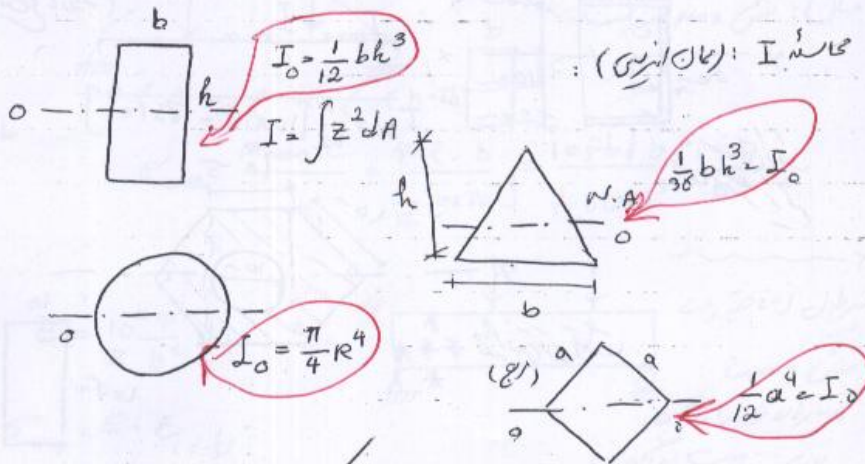 محاسبهٔ I : (ممان اینرسی) :
b
h
0
I₀ = 1/12 bh³
I = ∫z² dA
h
b
N.A
0
1/36 bh³ = I₀
0
I₀ = π/4 R⁴
(مربع)
a
a
0
0
1/12 a⁴ = I₀